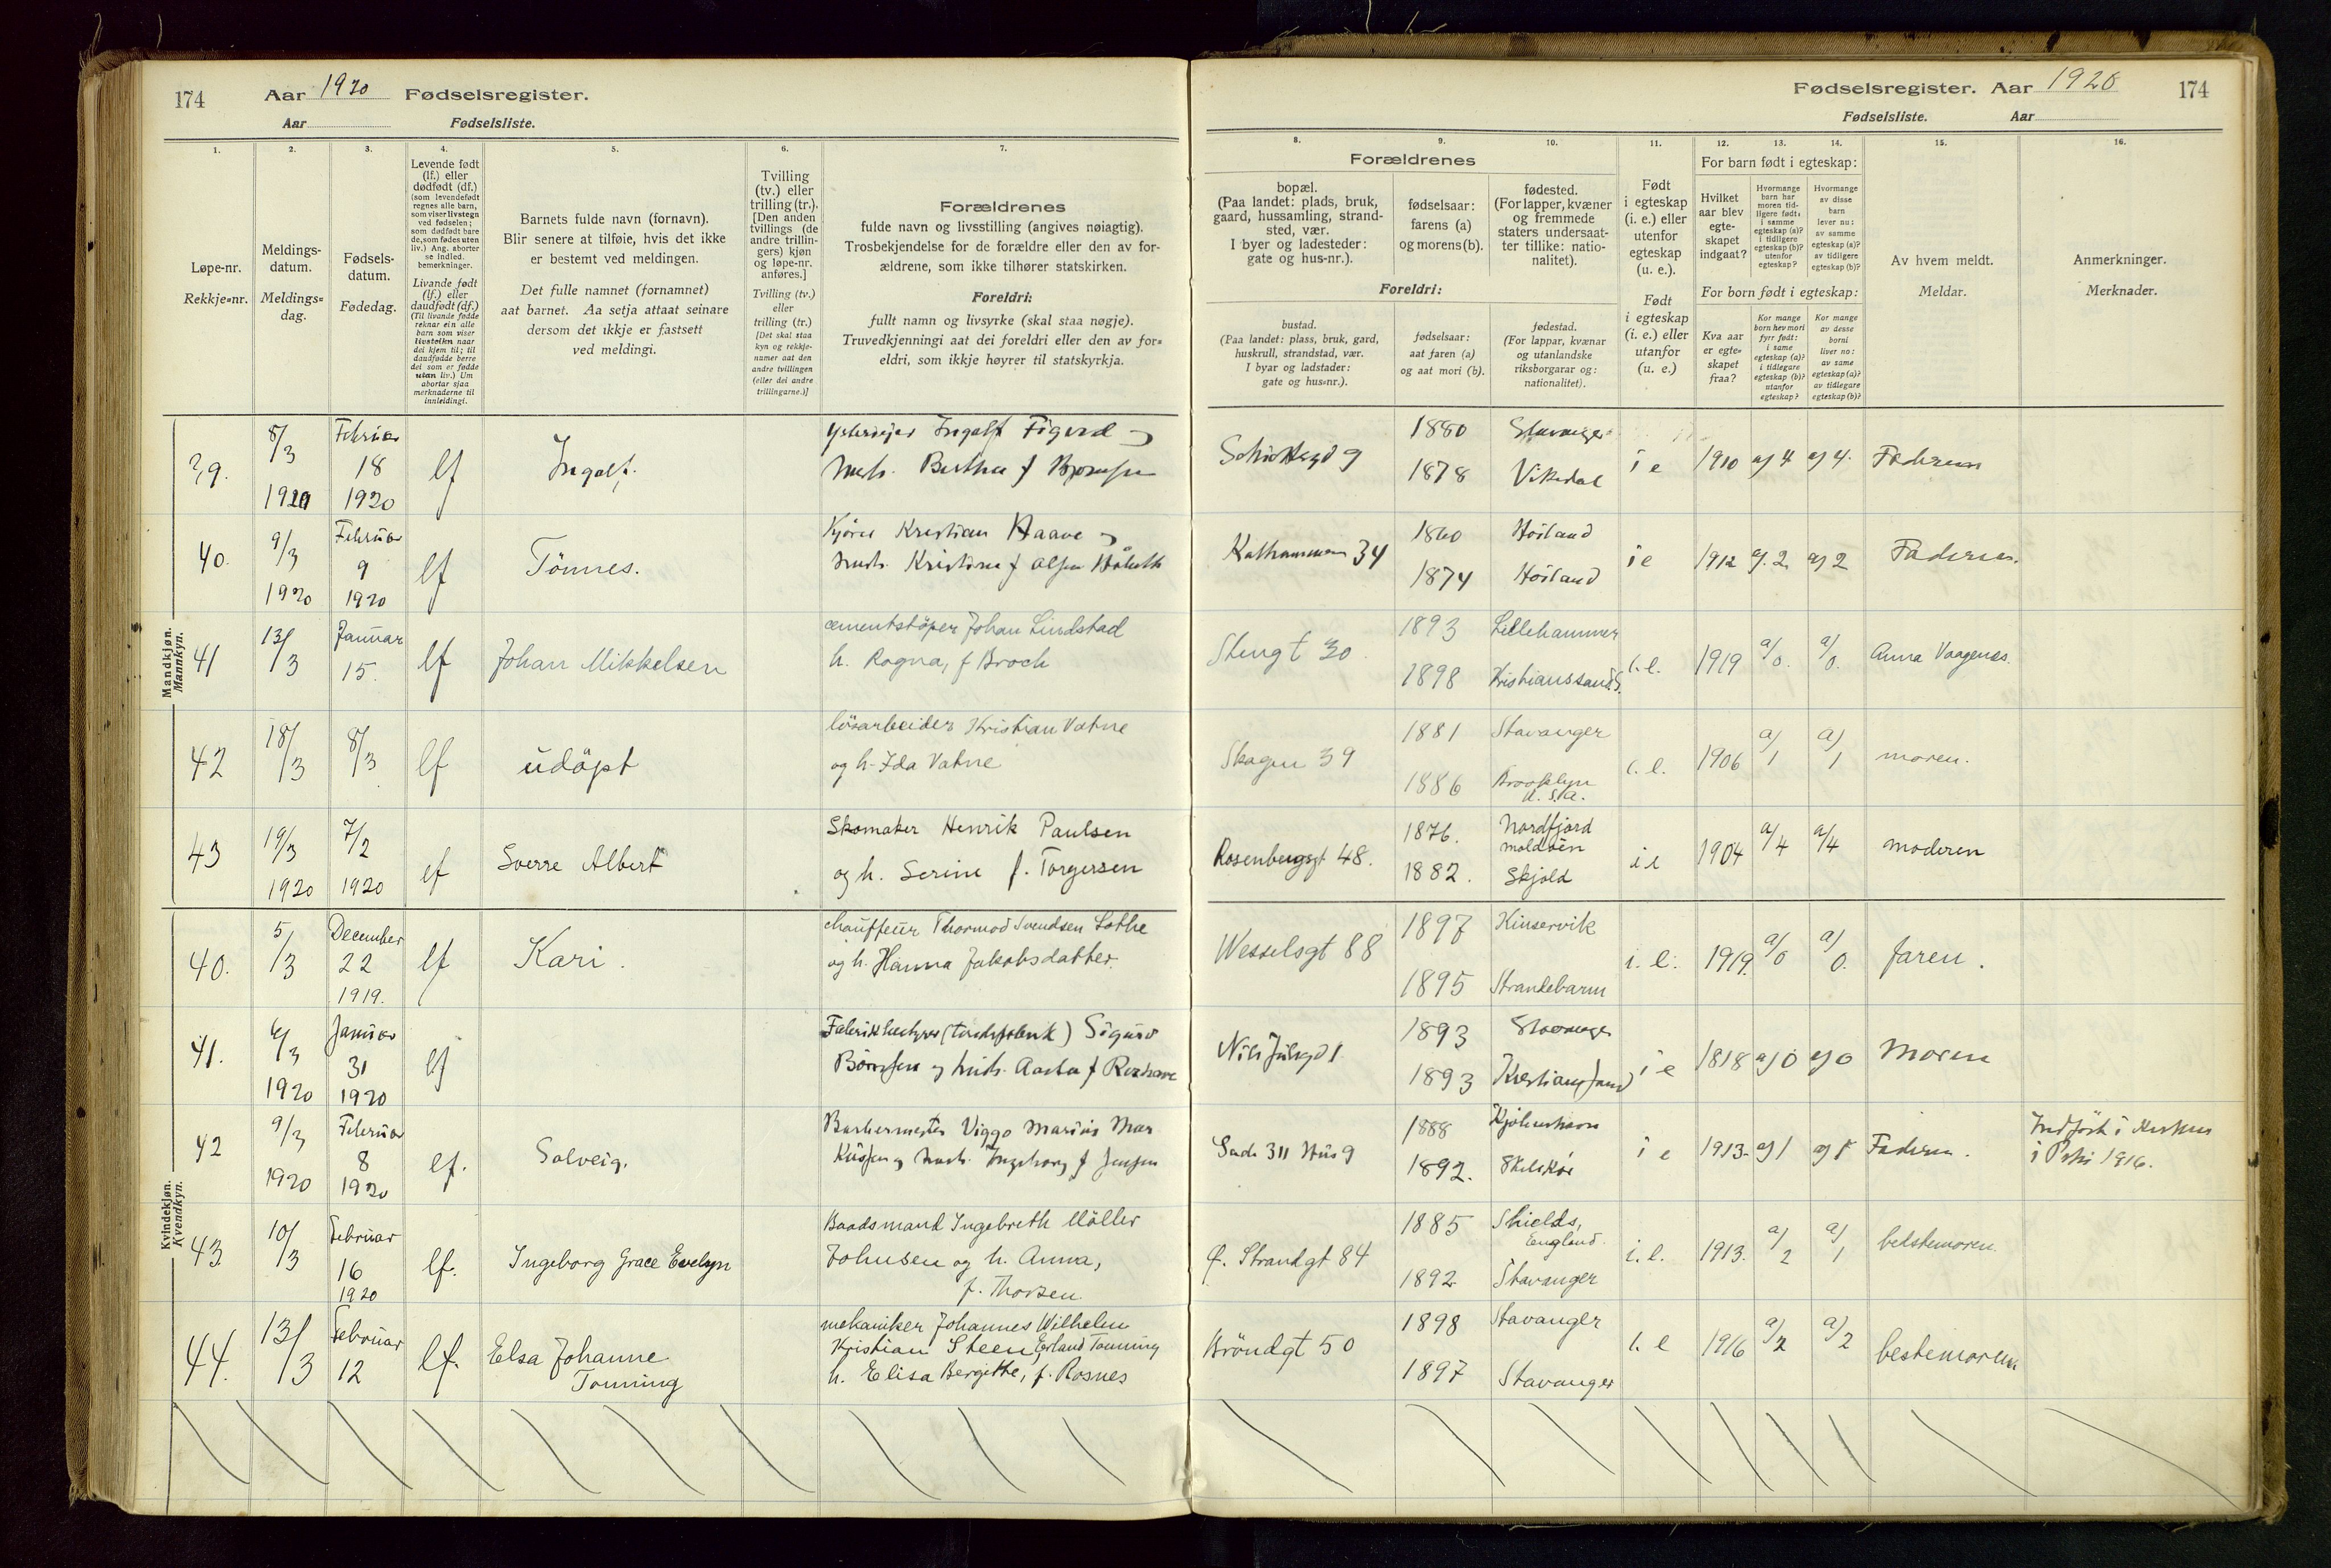 174 Aar 1920 Fødselsregister.
Aar Fødselsliste.
1. 2. 3. 4. 5. 6. 7.
Løpe-nr.
Rekkje=nr.
Meldings-
datum.
Meldings=
dag.
Fødsels-
datum.
Fødedag.
Levende født
(lf.) eller
dødfødt (df.)
(som levendefødt
regnes alle barn,
som viser livstegn
ved fødselen;
som dødfødt bare
de, som fødes uten
liv.) Ang. aborter
se indled.
bemerkninger.
Livande født
(lf.) eller
daudfødt (df.)
(Til livande fødde
reknar ein alle
barn som viser
livsteikn naar
dei kjem til; til
daudfødde berre
dei som er fødde
utan liv.) Um
abortar sjaa
merknaderne til
innleidingi.
Barnets fulde navn (fornavn).
Blir senere at tilføie, hvis det ikke
er bestemt ved meldingen.
Det fulle namnet (fornamnet)
aat barnet. Aa setja attaat seinare
dersom det ikkje er fastsett
ved meldingi.
Tvilling
(tv.) eller
trilling (tr.).
[Den anden
tvillings (de
andre trillin-
gers) kjøn
og løpe-nr.
anføres.]
Tvilling (tv.)
eller
trilling (tr.)
[Det skal staa
kyn og rekkje-
numer aat den
andre tvillingen
(eller dei andre
trillingarne.)]
Forældrenes
fulde navn og livsstilling (angives nøiagtig).
Trosbekjendelse for de forældre eller den av for-
ældrene, som ikke tilhører statskirken.
Foreldri:
fullt namn og livsyrke (skal staa nøgje).
Truvedkjenningi aat dei foreldri eller den av for=
eldri, som ikkje høyrer til statskyrkja.
Fødselsregister. Aar 1920 174
Fødselsliste. Aar
8. 9. 10. 11. 12. 13. 14. 15. 16.
Forældrenes
bopæl.
(Paa landet: plads, bruk,
gaard, hussamling, strand-
sted, vær.
I byer og ladesteder:
gate og hus-nr.).
fødselsaar:
farens (a)
og morens (b).
fødested.
(For lapper, kvæner
og fremmede
staters undersaat-
ter tillike: natio-
nalitet).
Foreldri:
bustad.
(Paa landet: plass, bruk, gard,
huskrull, strandstad, vær.
I byar og ladstader:
gate og hus=nr.).
fødselsaar:
aat faren (a)
og aat mori (b).
fødestad.
(For lappar, kvænar
og utanlandske
riksborgarar og:
nationalitet).
Født
i egteskap
(i. e.) eller
utenfor
egteskap
(u. e.).
Født
i egteskap
(i. e.) eller
utanfor
egteskap
(u. e.)
For barn født i egteskap:
Hvilket
aar blev
egte-
skapet
indgaat?
Hvormange
barn har
moren tid-
ligere født:
i samme
egteskap (a)?
i tidligere
egteskap (b)?
utenfor
egteskap?
Hvormange
av disse
barn
lever nu:
av samme
egteskap (a)?
av tidligere
egteskap (b)?
For born født i egteskap:
Kva aar
er egte=
skapet
fraa?
Kor mange
born hev mori
fyrr født:
i same
egteskap (a)?
i tidlegare
egteskap (b)?
utanfor
egteskap?
Kor mange
av desse
borni
liver no:
av same
egteskap (a)?
av tidlegare
egteskap (b)?
Av hvem meldt.
Meldar.
Anmerkninger.
Merknader.
Mandkjøn.
Mannkyn.
39. 8/3 1920 Februar 18 1920 lf Ingolf. Ingolf Figved
Bertha f Bjørnsen
9 1880 Stavanger 1878 Vikedal i e 1910 a) 4 a) 4. Faderen
40. 9/3 1920 Februar 9 1920 lf Tönnes. Kjörer Kristian Haave
Kristine f Olsen
34 1860 Höiland 1874 Höiland i e 1912 a). 2. a) 2 Faderen.
41 13/3 Januar 15. lf Johan Mikkelsen cementstöper Johan Lindstad
h. Ragna, f Broch
Stengt 30 1893 Lillehammer 1898 Kristianssand S. i. e. 1919 a/0. a/0. Anna Vaagenes.
42 18/3 8/3 lf udöpt lösarbeider Kristian Vatne
og h. Ida Vatne
Skagen 39 1881 Stavanger 1886 Brooklyn U. S. A. i. e. 1906 a/1 a/1 moren.
43 19/3 1920 7/2 1920 lf Sverre Albert Skomaker Henrik Paulsen
og h. Serine f. Torgersen
Rosenbergsgt 48. 1876. Nordfjord moldöen 1882. Skjold i e 1904 a/4 a/4 moderen
Kvindekjøn.
Kvendkyn.
40. 5/3 December 22 1919. lf Kari. chauffeur Thormod Svendsen Lothe
og h. Hanna Jakobsdatter.
Wesselsgt 88 1897 Kinservik 1895 Strandebarm i. e. 1919. a/0 a/0. faren.
41. 6/3 1920 Januar 31 1920 lf Sigurd
Aasta f
Nils Juelsgd 1 1893 Stavanger 1893 Kristianssand i e 1818 a) 0 a) 0 Moren
42 9/3 1920 Februar 8 1920 lf. Solveig. Barbermester Viggo Marius Mar
Kusssen og Ingeborg f Jensen
Lade 311 Hus 9 1888 Kjöbenhavn 1892. Skelskör i e 1913. a) 1 a) 1 Faderen. Indfört i
i Petri 1916.
43. 10/3 Februar 16 1920 lf. Ingeborg Grace Evelyn Baadsmand Ingebreth Möller
Johnsen og h. Anna,
f. Thorsen.
Ø. Strandgt 84 1885 Shields, England. 1892 Stavanger i. e. 1913. a/2 a/1 bedstemoren.
44. 13/3 Februar 12 lf. Elsa Johanne
Tonning mekaniker Johannes Wilhelm
Kristian Steen, Erland Tonning
h. Elisa Bergitte, f. Rosnes
Bröndgt 50 1898 Stavanger 1897 Stavanger i. e 1916 a/2 a/2 bestemoren